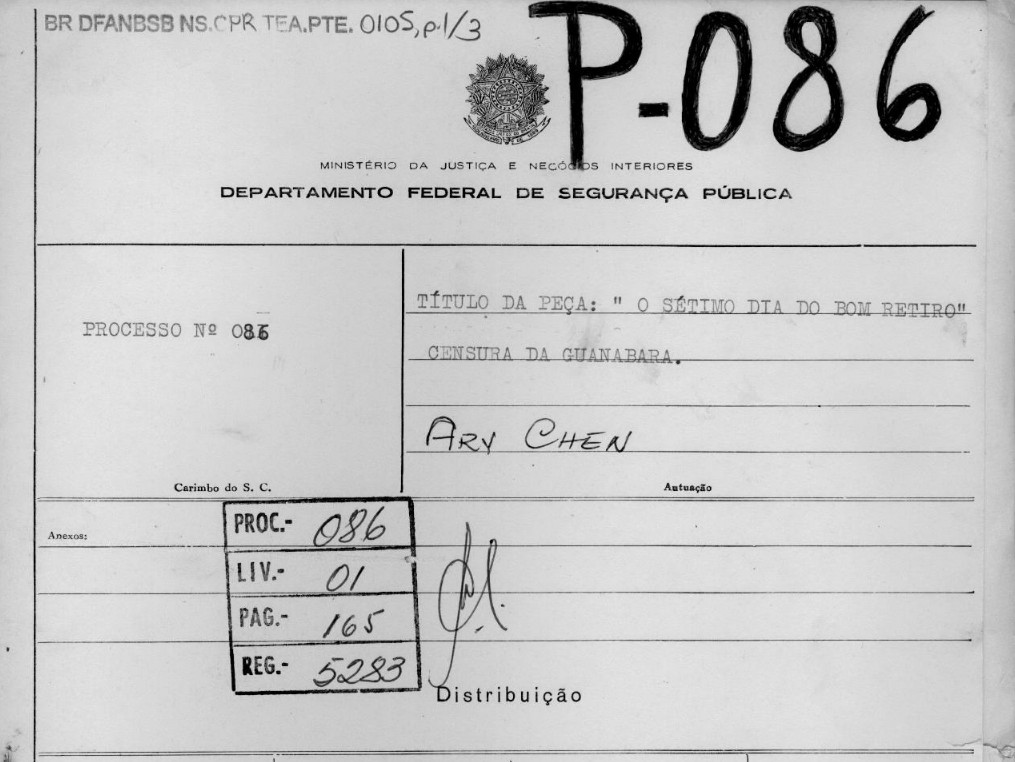 BR DFANBSB NS.CPR TEA.PTE. 0105, p.1/3
P-086
MINISTÉRIO DA JUSTIÇA E NEGÓCIOS INTERIORES
DEPARTAMENTO FEDERAL DE SEGURANÇA PÚBLICA
PROCESSO Nº 086
TÍTULO DA PEÇA: " O SÉTIMO DIA DO BOM RETIRO"
CENSURA DA GUANABARA.
ARY CHEN
Carimbo do S. C.
Autuação
Anexos:
PROC.- 086
LIV.- 01
PAG.- 165
REG.- 5283
Distribuição